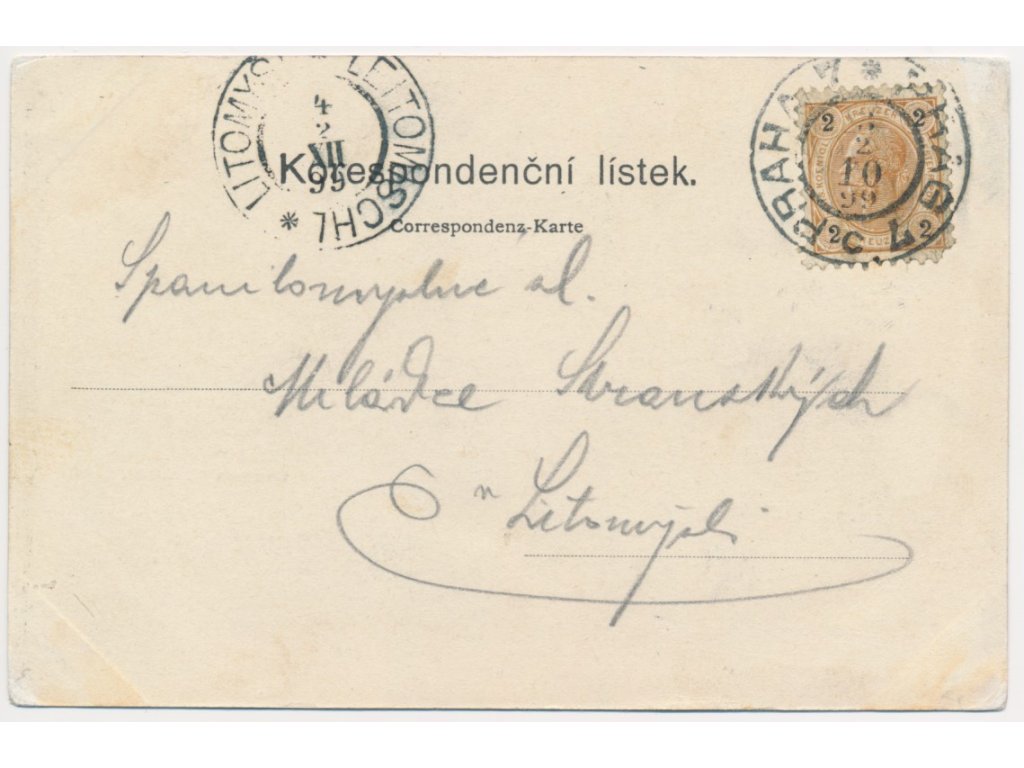 LITOMYŠL * LEITOMISCHL *
4
2
XII
99
PRAHA * PRAG
2
10
99
2 2
2 2
Korespondenční lístek.
Correspondenz-Karte
Spanilomyslné sl.
Mládce Stranských
v Litomyšli